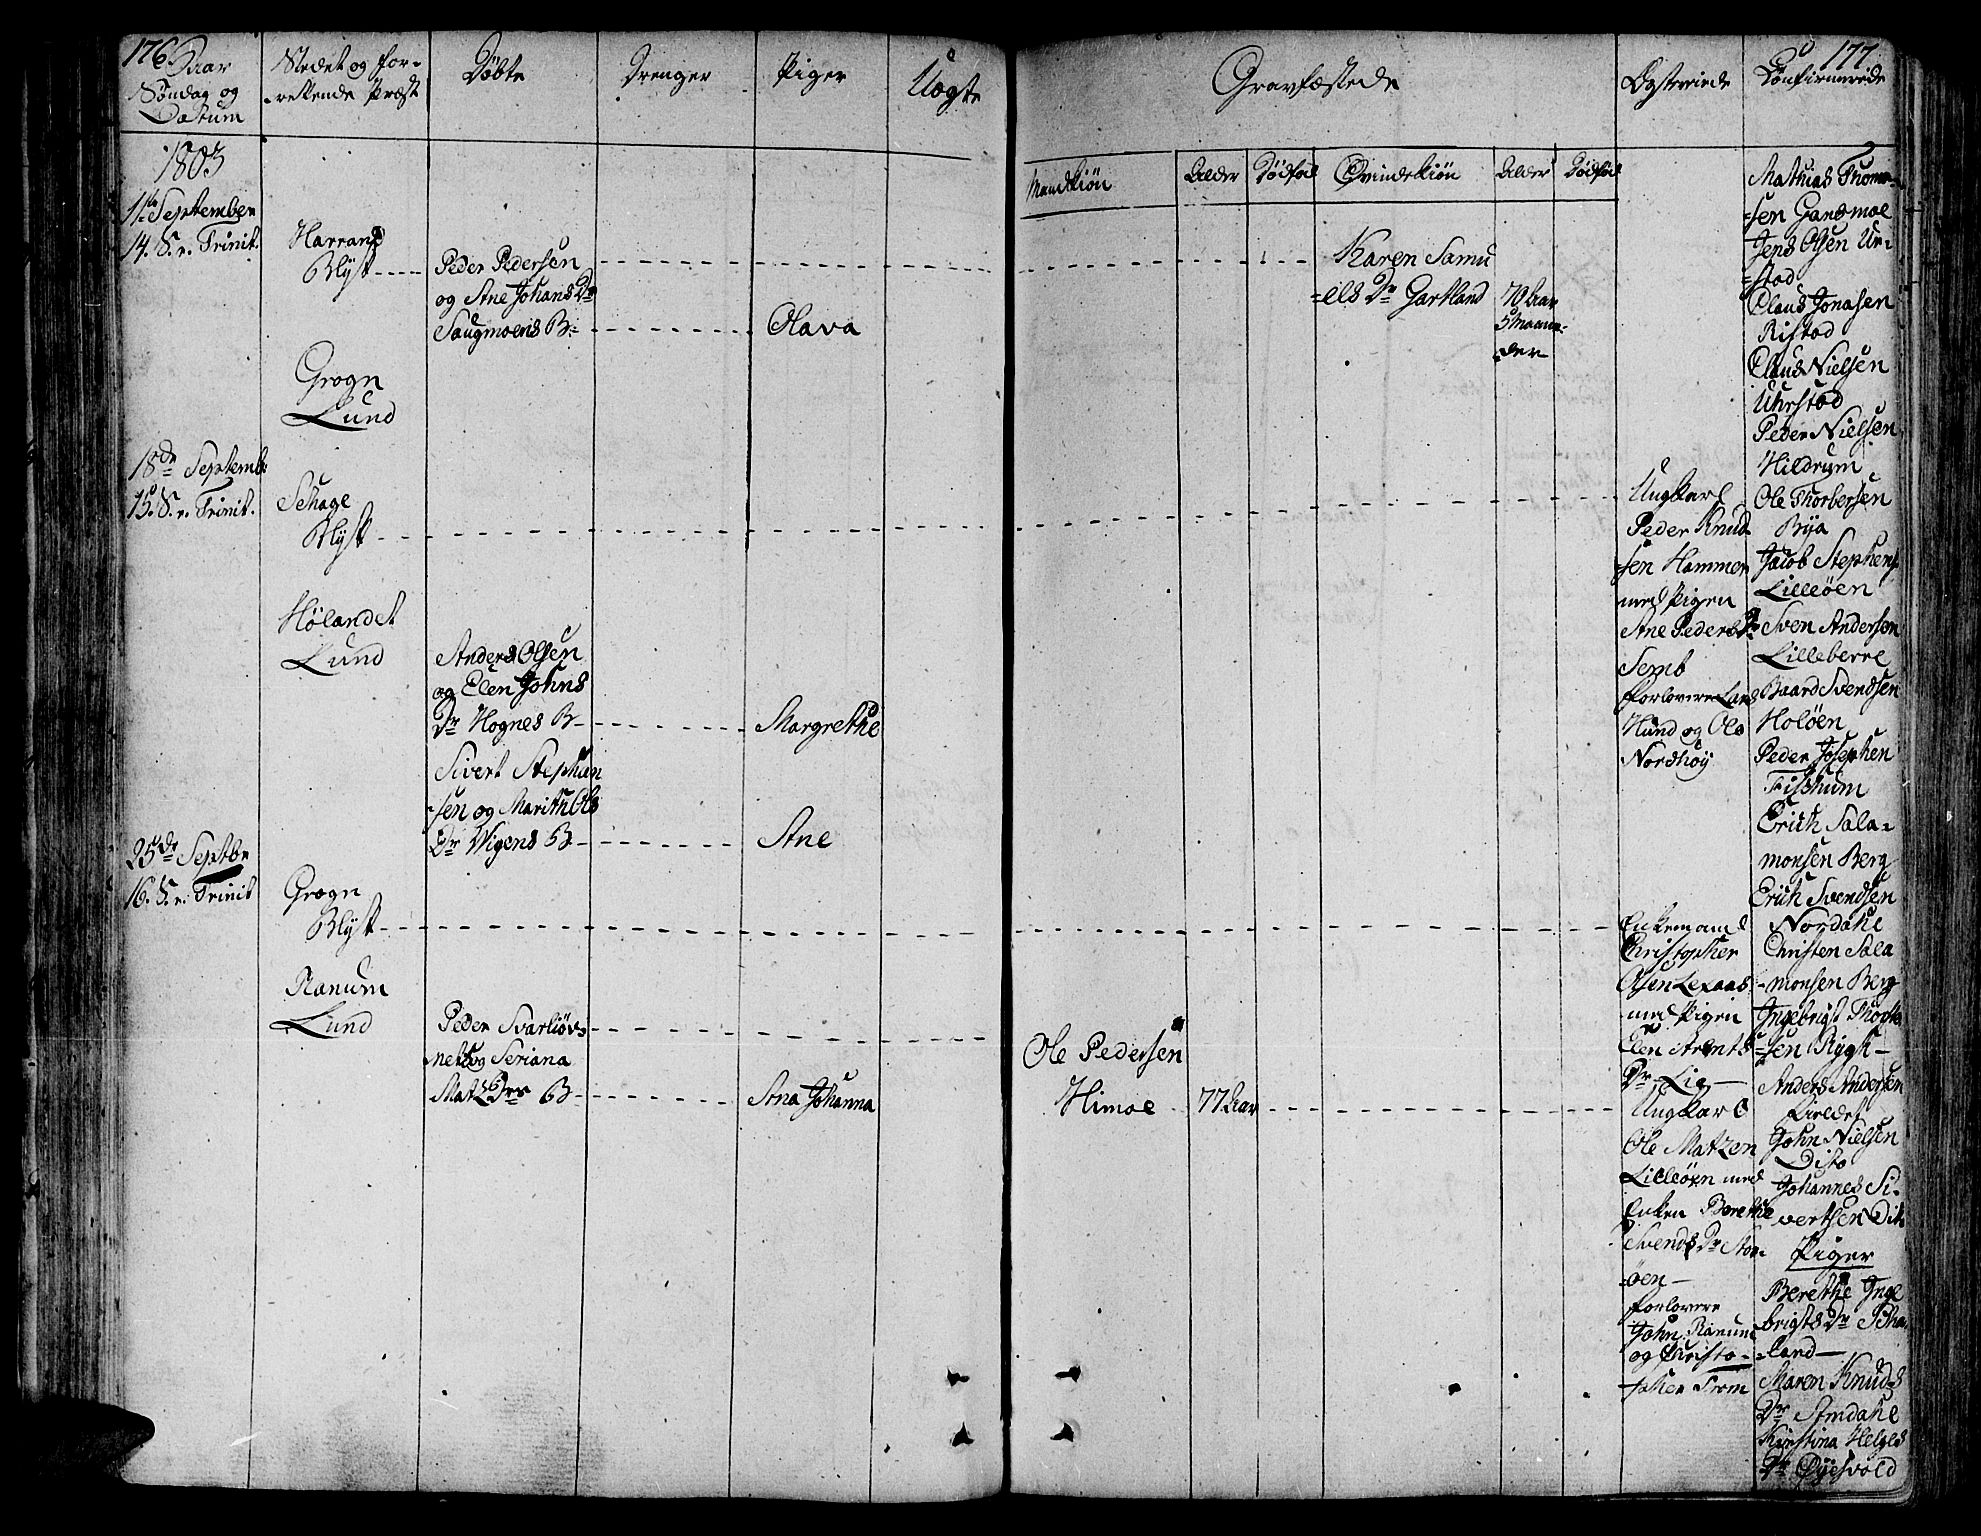 176
Aar
Søndag og
Datum
Stedet og for-
-rettende Præst
Døbte
Drenger
Piger
Uægte
1803
11te September
14. S. v. Trinit.
Harran
Blÿst
Peder Pedersen
og Ane Johans Dr
Saugmoens B-
Olava
Grogn
Lund
18de Septembr
15. S. v. Trinit.
Sehage
Blÿst
Hølandet
Lund
Anders Olsen
og Elen Johns
Dr Hognes B-
Margrethe
Sivert Stephan
-sen og Marith Ols
Dr Wigens B-
Ane
25de Septbr
16. S. v. Trinit
Grogn
Blÿst
Ranum
Lund
Peder Svarliøv-
net og Seriana
Matz Dr B-
Ana Johanna
177
Gravfæstede
Copulerede
Confirmerede
Mandkiøn
Alder
Dødfød
Qvindekiøn
Alder
Dødfød
Karen Samu
-els Dr Gartland
70 Aar
5 Maane-
-der
Ole Pedersen
Himoe
77 Aar
Ungkarl
Peder Knud-
-sen Hammer
med Pigen
Ane Peders Dr
Semb
forlovere Lars
Hund og Ole
Nordhøÿ
Enkemand
Christopher
Olsen Lexaas
med Pigen
Elen Arnts
Dr Lie -
Ungkarl
Ole Matzen
Lilleøen med
Enken Berethe
Svends Dr Stor-
-øen -
forlovere
John Ranum
og Christo-
-pher Trom
Mathias Thom-
-sen Gansmoe
Jens Olsen Ur-
-stad
Claus Jonasen
Ristad
Claus Nielsen
Uhrstad
Peder Nielsen
Hildrum
Ole Thorbersen
Bÿa
Jacob Stephens
Lilleøen
Sven Andersen
Lilleberre
Baard Svendsen
Holøen
Peder Josephsen
Fiskum
Erich Sala-
monsen Berg
Erich Svendsen
Nordahl
Christen Sala
-monsen Berg
Ingebrigt Thor
-sen Rÿgh -
Anders Andersen
John Nielsen
Dito
Johannes Si-
vertsen Dito
Piger
Berethe Inge
brigts Dr
-land -
Maren Knuds
Dr Amdahl
Kirstina Helges
Dr Øÿesvold